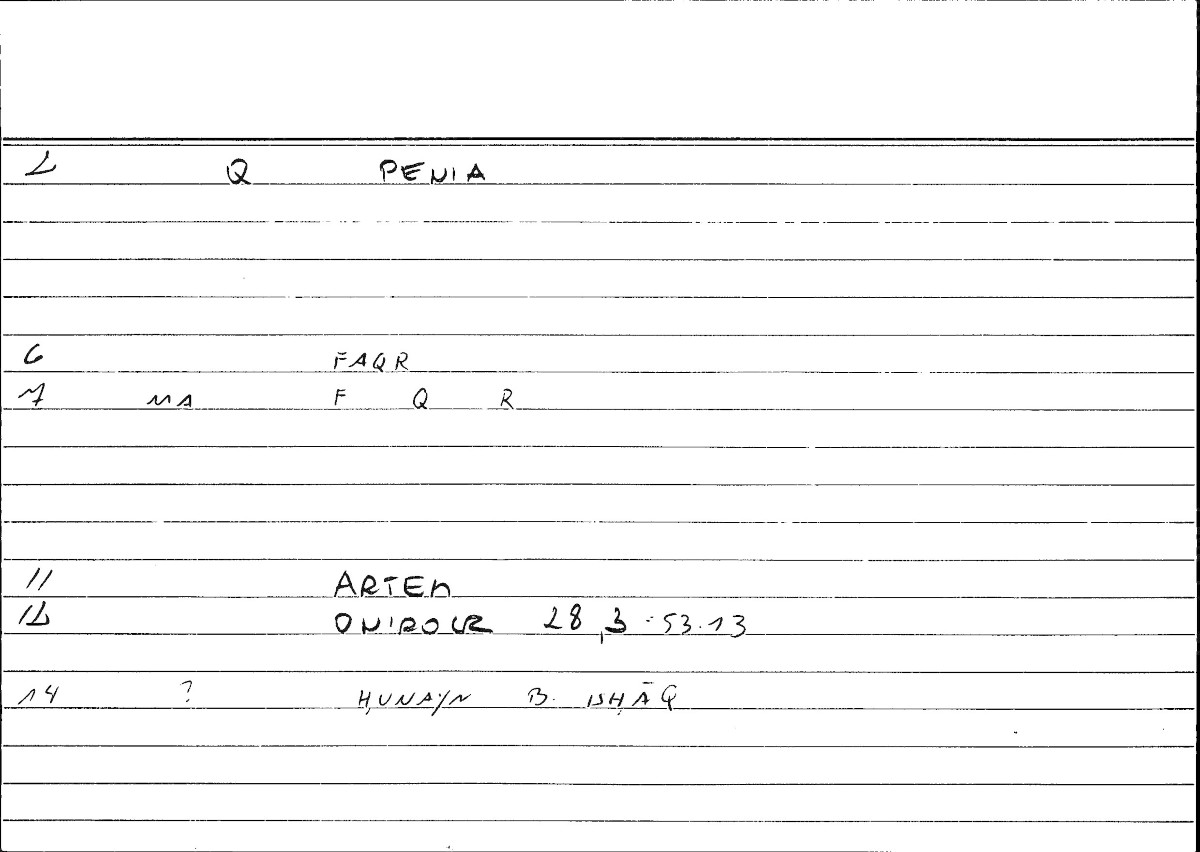 2 Q PENIA
6 FAQR
7 NA F Q R
11 ARTEM
12 ONIROCR 28,3 - 53.13
14 ? ḤUNAYN B. ISḤĀQ